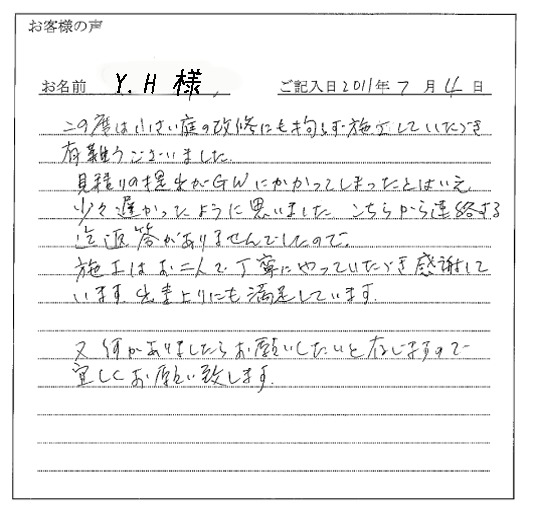 お客様の声
お名前 Y.H 様 ご記入日2011年 7 月 4 日
この度は小さい庭の改修にも拘らず施工していただき
有難うございました。
見積りの提出がGWにかかってしまったとはいえ
少々遅かったように思いました こちらから連絡する
迄返答がありませんでしたので。
施工はお二人で丁寧にやっていただき感謝して
います。出来上りにも満足しています。
又何かありましたらお願いしたいと存じますので
宜しくお願い致します。